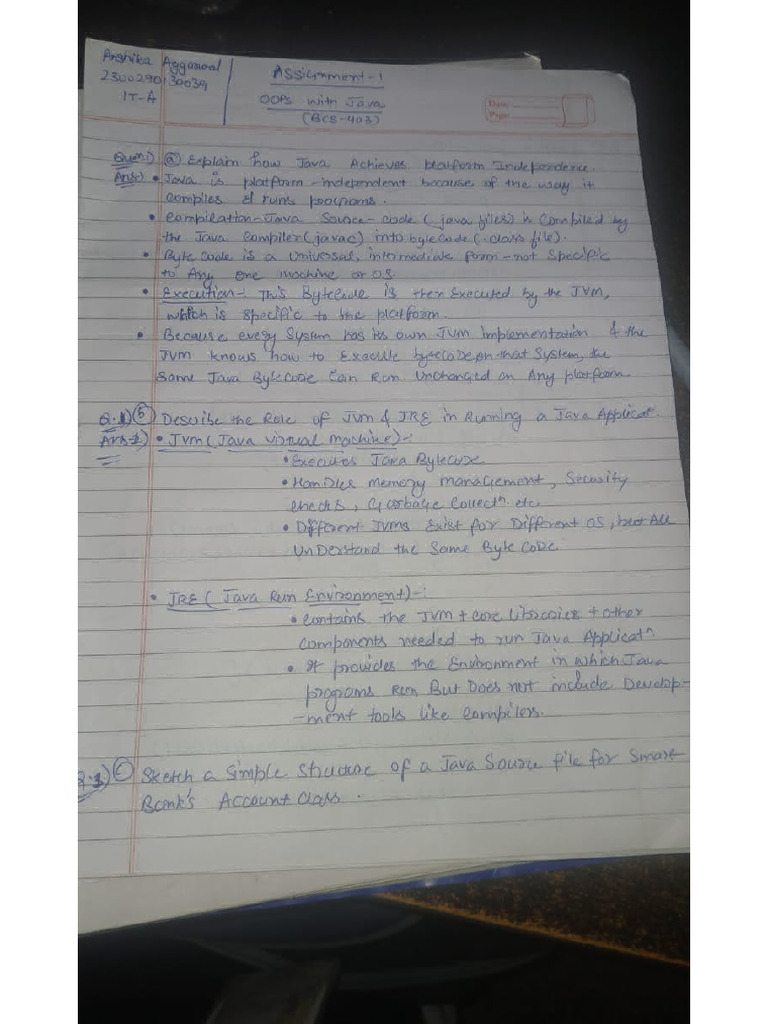 Anshika Aggarwal
2300290130039
IT-A
Assignment-1
OOPs with Java
(BCS-403)
Date:
Page:
Ques:1) (a) Explain how Java Achieves platform Independence.
Ans:) • Java is platform-independent because of the way it
compiles & runs programs.
• Compilation-Java Source-code (.java files) is compiled by
the Java Compiler (javac) into bytecode (.class file).
• Byte code is a universal, intermediate form-not specific
to Any one machine or OS.
• Execution-: This Bytecode is then Executed by the JVM,
which is specific to the platform.
• Because every System has its own JVM implementation & the
JVM knows how to Execute bytecode on that System, the
Same Java Bytecode Can Run Unchanged on Any platform.
Q.1) (b) Describe the Role of JVM & JRE in Running a Java Applicatn.
Ans-1) • JVM (Java virtual machine)-:
• Executes Java Bytecode
• Handles memory management, Security
checks, Garbage Collectn. etc.
• Different JVMs Exist for Different OS, but All
UnDerstand the Same Byte CoDe.
• JRE (Java Run Environment)-:
• Contains the JVM + core libraries + other
components needed to run Java Applicatn.
• It provides the Environment in which Java
programs Run But Does not include Develop-
-ment tools like Compilers.
Q.1) (c) Sketch a simple structure of a Java Source file for Smart
Bank's Account class.